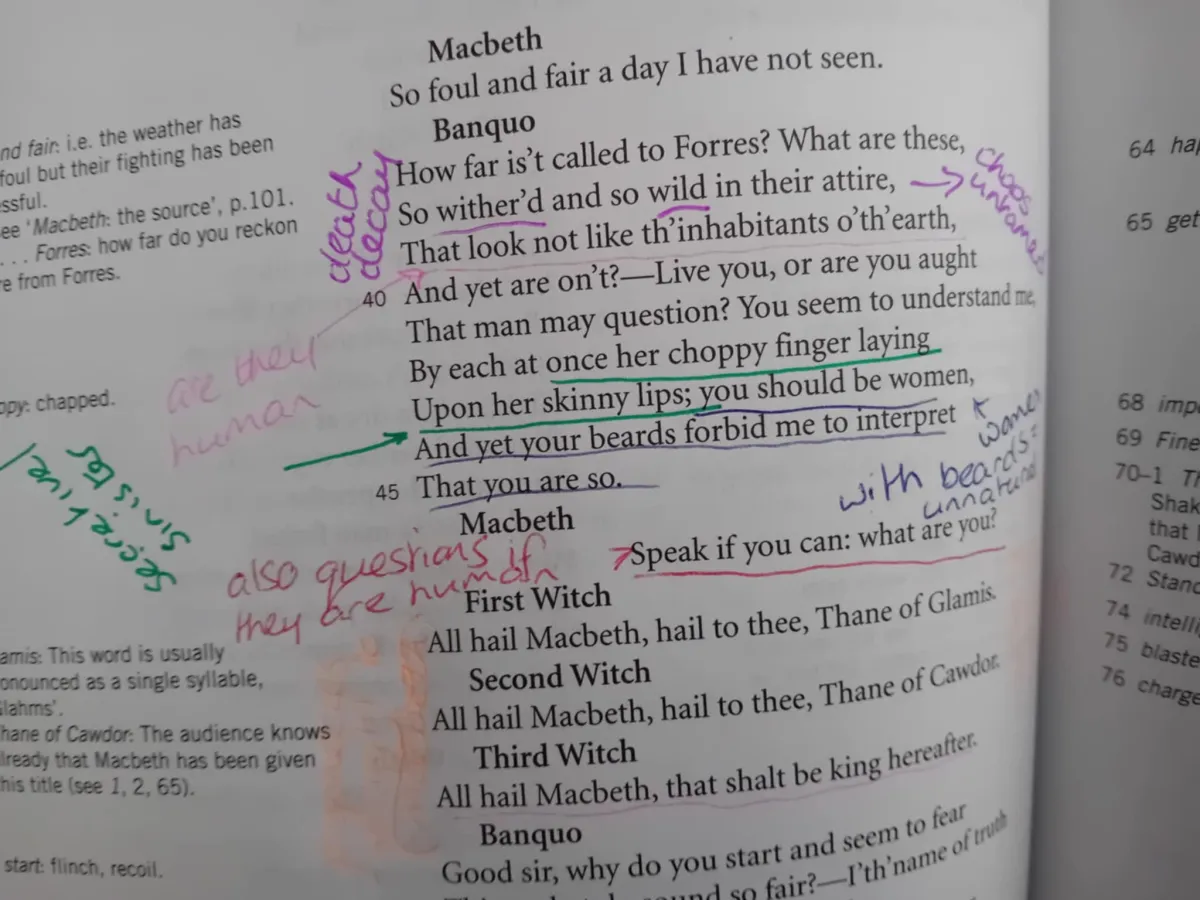 Macbeth
So foul and fair a day I have not seen.
Banquo
How far is't called to Forres? What are these,
So wither'd and so wild in their attire,
That look not like th'inhabitants o'th'earth,
40 And yet are on't?—Live you, or are you aught
That man may question? You seem to understand me,
By each at once her choppy finger laying
Upon her skinny lips; you should be women,
And yet your beards forbid me to interpret
45 That you are so.
Macbeth
Speak if you can: what are you?
First Witch
All hail Macbeth, hail to thee, Thane of Glamis.
Second Witch
All hail Macbeth, hail to thee, Thane of Cawdor.
Third Witch
All hail Macbeth, that shalt be king hereafter.
Banquo
Good sir, why do you start and seem to fear
so fair?—I'th'name of truth
nd fair: i.e. the weather has
foul but their fighting has been
ssful.
ee 'Macbeth: the source', p.101.
. . . Forres: how far do you reckon
re from Forres.
ppy: chapped.
amis: This word is usually
onounced as a single syllable,
lahms'.
hane of Cawdor: The audience knows
lready that Macbeth has been given
his title (see 1, 2, 65).
start: flinch, recoil.
death
decay
are they
human
secretive,
sinister
also questions if
they are human
women
with beards
64 hap
65 get
68 impe
69 Fine
70–1 Th
Shak
that
Cawd
72 Stand
74 intelli
75 blaste
76 charge